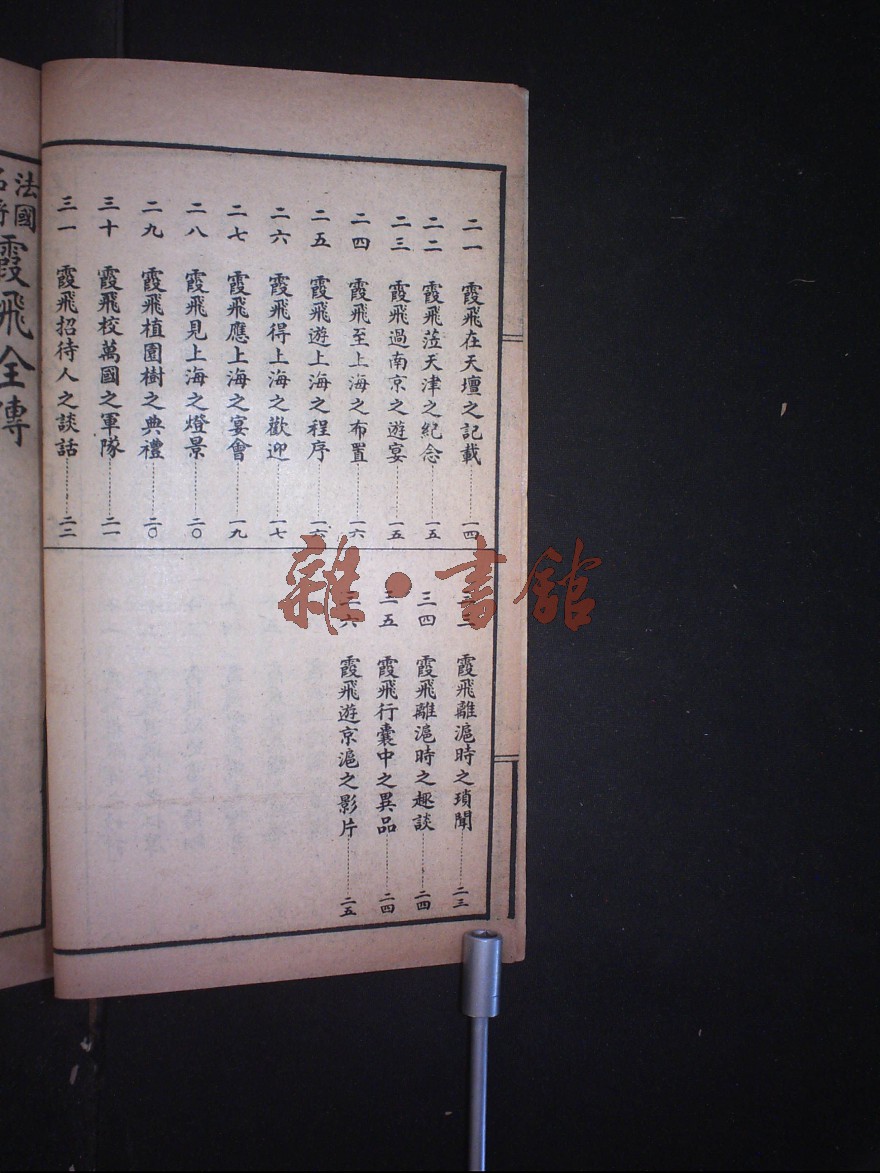 二一 霞飛在天壇之記載…………一四
二二 霞飛蒞天津之紀念…………一五
二三 霞飛過南京之遊宴…………一五
二四 霞飛至上海之布置…………一六
二五 霞飛遊上海之程序…………一六
二六 霞飛得上海之歡迎…………一七
二七 霞飛應上海之宴會…………一九
二八 霞飛見上海之燈景…………二〇
二九 霞飛植園樹之典禮…………二〇
三十 霞飛校萬國之軍隊…………二一
三一 霞飛招待人之談話…………二二
霞飛離滬時之瑣聞…………二三
三四 霞飛離滬時之趣談…………二四
三五 霞飛行囊中之異品…………二四
三六 霞飛遊京滬之影片…………二五
法國
霞飛全傳
雜·書館